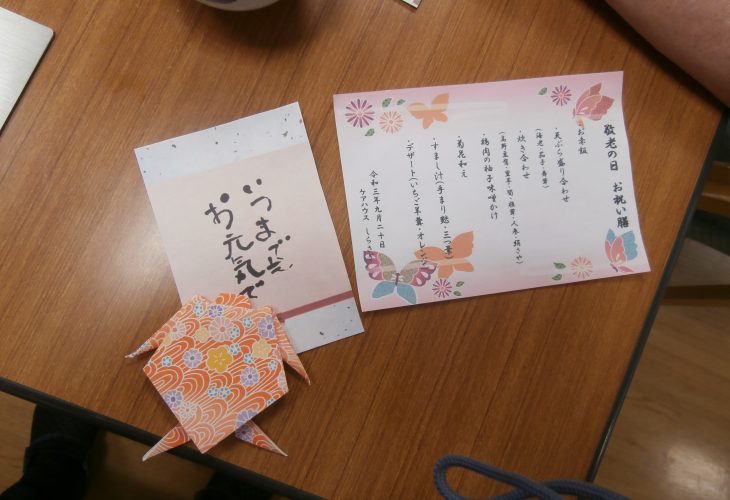 いつまでも
お元気で
敬老の日 お祝い膳
・お赤飯
・天ぷら盛り合わせ
(海老・茄子・春菊)
・炊き合わせ
(高野豆腐・里芋・筍・椎茸・人参・絹さや)
・鶏肉の柚子味噌かけ
・菊花和え
・すまし汁(手まり麩・三つ葉)
・デザート(いちご羊羹・オレンジ
令和三年九月二十日
ケアハウス しらさ